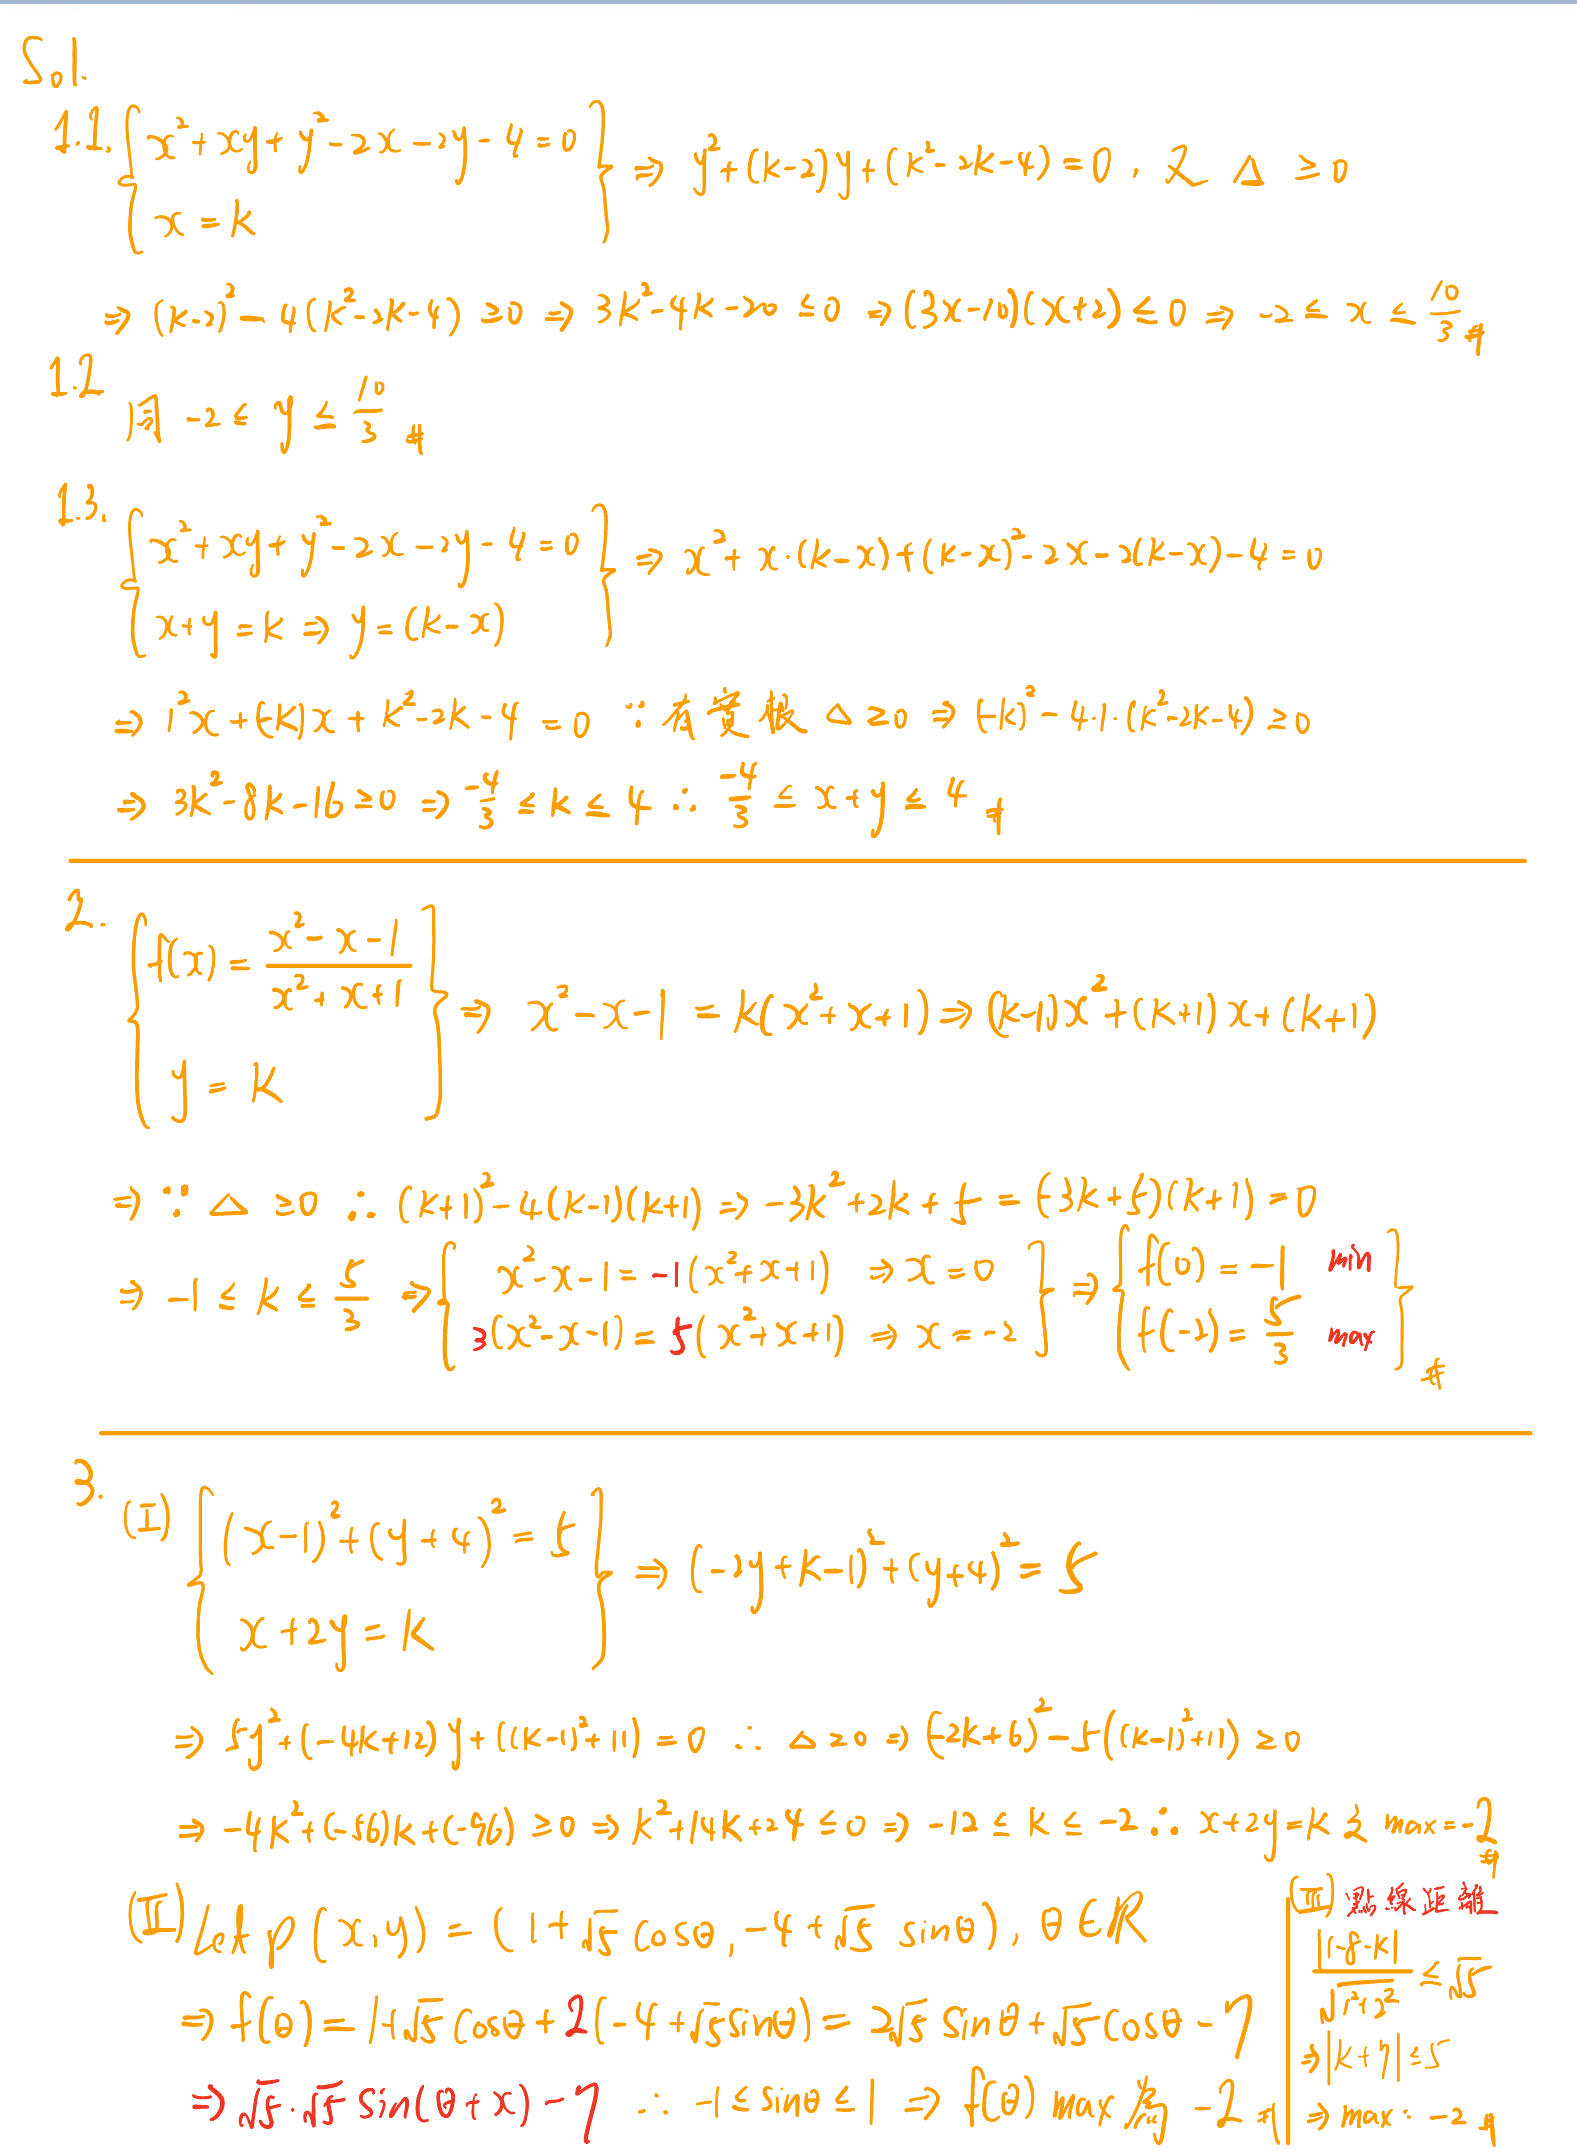 Sol.
1.1. { x²+xy+y²-2x-2y-4=0
x=k } ⇒ y²+(k-2)y+(k²-2k-4)=0, 又 Δ ≥0
⇒ (k-2)²-4(k²-2k-4) ≥0 ⇒ 3k²-4k-20 ≤0 ⇒ (3x-10)(x+2) ≤0 ⇒ -2 ≤ x ≤ 10/3 #
1.2
同 -2 ≤ y ≤ 10/3 #
1.3.
{ x²+xy+y²-2x-2y-4=0
x+y=k ⇒ y=(k-x) } ⇒ x²+x·(k-x)+(k-x)²-2x-2(k-x)-4=0
⇒ 1²x+(-k)x+k²-2k-4=0 ∵有實根 Δ≥0 ⇒ (-k)²-4·1·(k²-2k-4) ≥0
⇒ 3k²-8k-16≥0 ⇒ -4/3 ≤ k ≤ 4 ∴ -4/3 ≤ x+y ≤ 4 #
2.
{ f(x) = (x²-x-1)/(x²+x+1)
y=k } ⇒ x²-x-1 = k(x²+x+1) ⇒ (k-1)x²+(k+1)x+(k+1)
⇒ ∵ Δ ≥0 ∴ (k+1)²-4(k-1)(k+1) ⇒ -3k²+2k+5 = (-3k+5)(k+1)=0
⇒ -1 ≤ k ≤ 5/3 ⇒ { x²-x-1=-1(x²+x+1) ⇒ x=0
3(x²-x-1)=5(x²+x+1) ⇒ x=-2 } ⇒ { f(0)=-1 min
f(-2)=5/3 max } #
3.
(I) { (x-1)²+(y+4)²=5
x+2y=k } ⇒ (-2y+k-1)²+(y+4)²=5
⇒ 5y²+(-4k+12)y+((k-1)²+11)=0 ∴ Δ≥0 ⇒ (-2k+6)²-5((k-1)²+11) ≥0
⇒ -4k²+(-56)k+(-96) ≥0 ⇒ k²+14k+24 ≤0 ⇒ -12 ≤ k ≤ -2 ∴ x+2y=k 之 max=-2 #
(II) Let p(x,y) = (1+√5 cosθ, -4+√5 sinθ), θ∈R
⇒ f(θ) = 1+√5 cosθ+2(-4+√5 sinθ) = 2√5 sinθ+√5 cosθ-7
⇒ √5·√5 sin(θ+x)-7 ∴ -1 ≤ sinθ ≤ 1 ⇒ f(θ) max 為 -2 #
(III) 點線距離
|1-8-k|/√(1²+2²) ≤ √5
⇒ |k+7| ≤5
⇒ max: -2 #